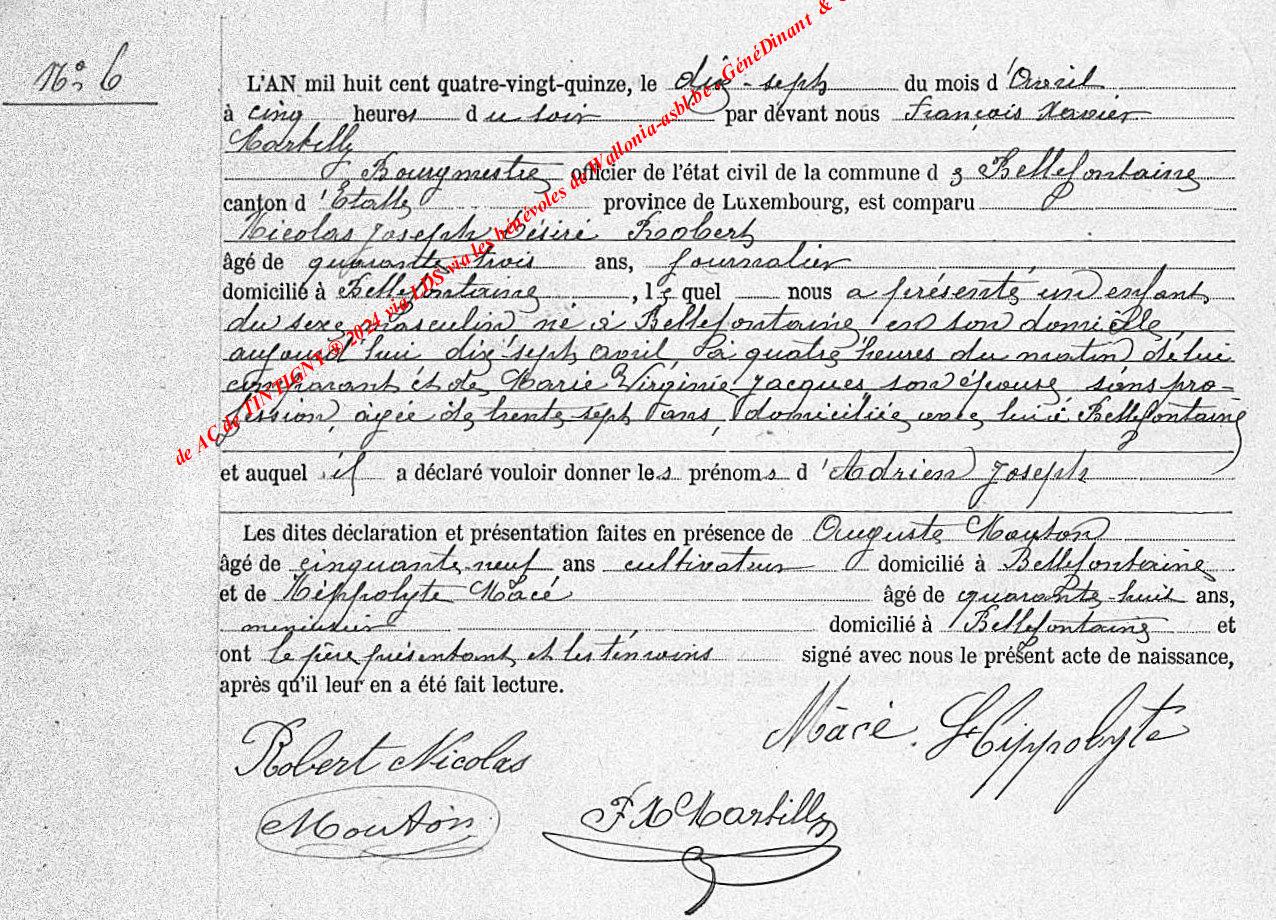 No 6
L'AN mil huit cent quatre-vingt-quinze, le dix-sept du mois d'Avril
à cinq heures du soir par devant nous François Xavier
Marbilly
Bourgmestre officier de l'état civil de la commune de Bellefontaine
canton d'Etalle province de Luxembourg, est comparu
Nicolas Joseph Désiré Robert
âgé de quarante trois ans, journalier
domicilié à Bellefontaine, lequel nous a présenté un enfant
du sexe masculin né à Bellefontaine en son domicile
aujourd'hui dix sept avril, à quatre heures du matin de lui
comparant et de Marie Virginie Jacques son épouse sans pro-
fession, âgée de trente sept ans, domiciliée avec lui à Bellefontaine
et auquel il a déclaré vouloir donner les prénoms d'Adrien Joseph
Les dites déclaration et présentation faites en présence de Auguste Mouton
âgé de cinquante-neuf ans cultivateur domicilié à Bellefontaine
et de Hippolyte Macé âgé de quarante-huit ans,
menuisier domicilié à Bellefontaine et
ont le père présentant et les témoins signé avec nous le présent acte de naissance,
après qu'il leur en a été fait lecture.
Macé. Hippolyte
Robert Nicolas
Mouton
F X Marbilly
de AC de TINTIGNY © 2024 via LDS via les bénévoles de Wallonia-asbl.be - GénéDinant &